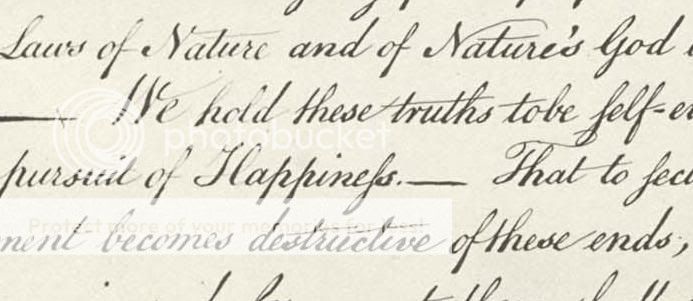 Laws of Nature and of Nature's God
— We hold these truths to be ſelf-e
pursuit of Happineſs. — That to ſecu
ment becomes destructive of these ends;
photobucket
Protect more of your memories for less!